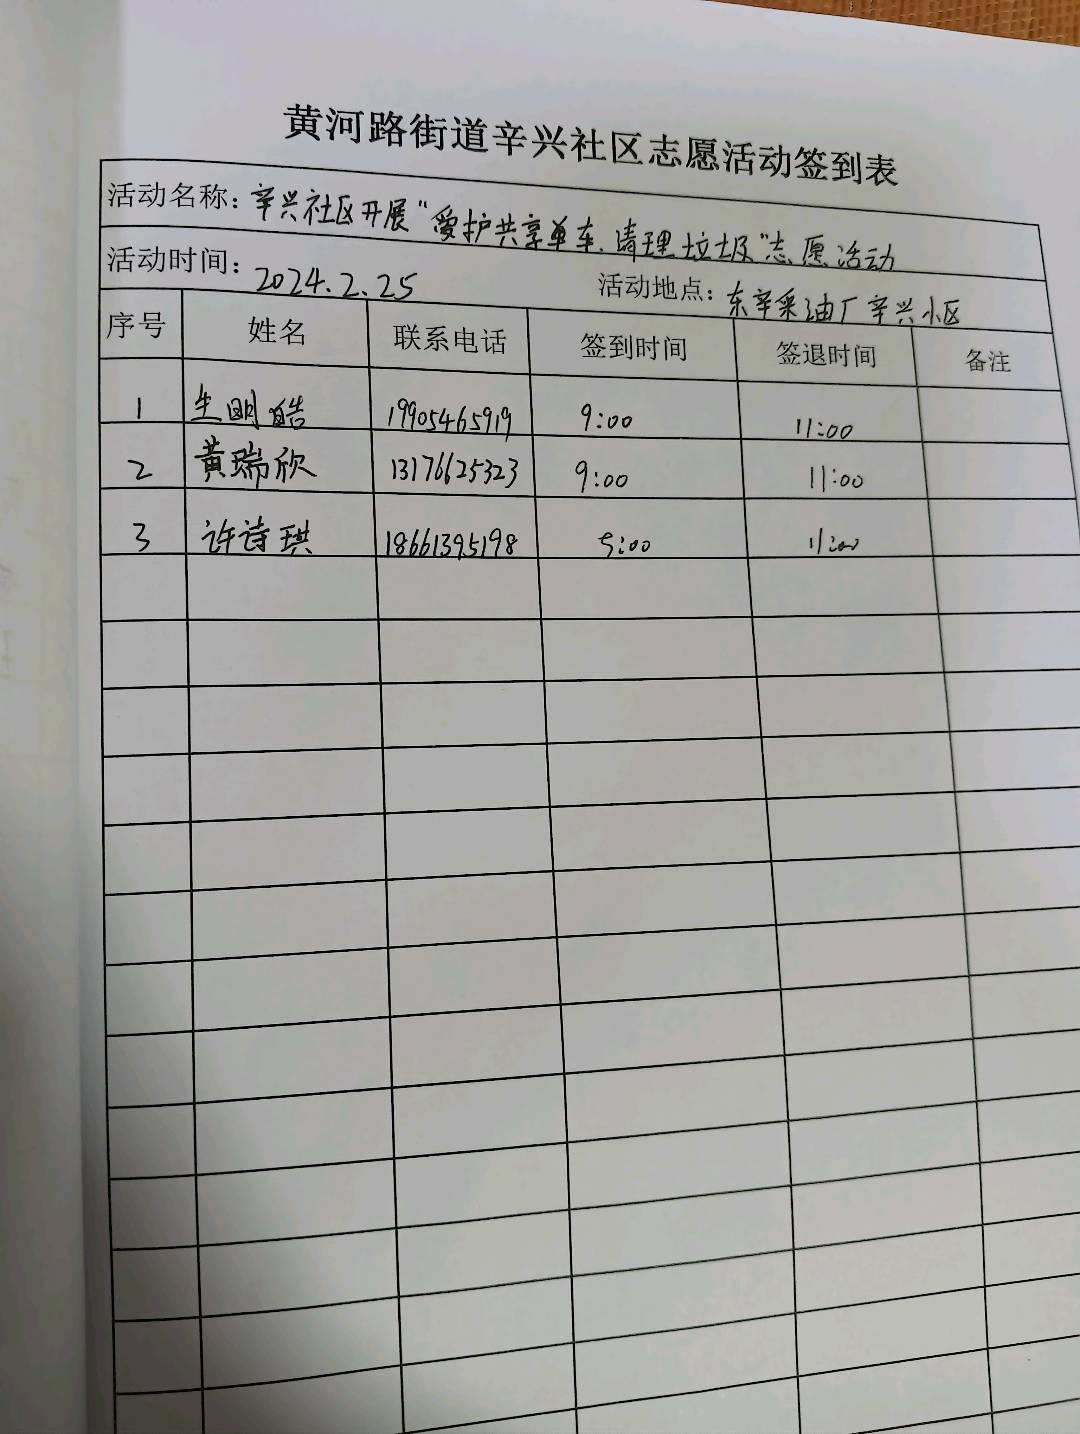 黄河路街道辛兴社区志愿活动签到表
活动名称：辛兴社区开展“爱护共享单车、清理垃圾”志愿活动
活动时间：2024.2.25 活动地点：东辛采油厂辛兴小区
序号 姓名 联系电话 签到时间 签退时间 备注
1 生明皓 19905465919 9:00 11:00
2 黄瑞欣 13176625323 9:00 11:00
3 许诗琪 18661395198 9:00 11:00